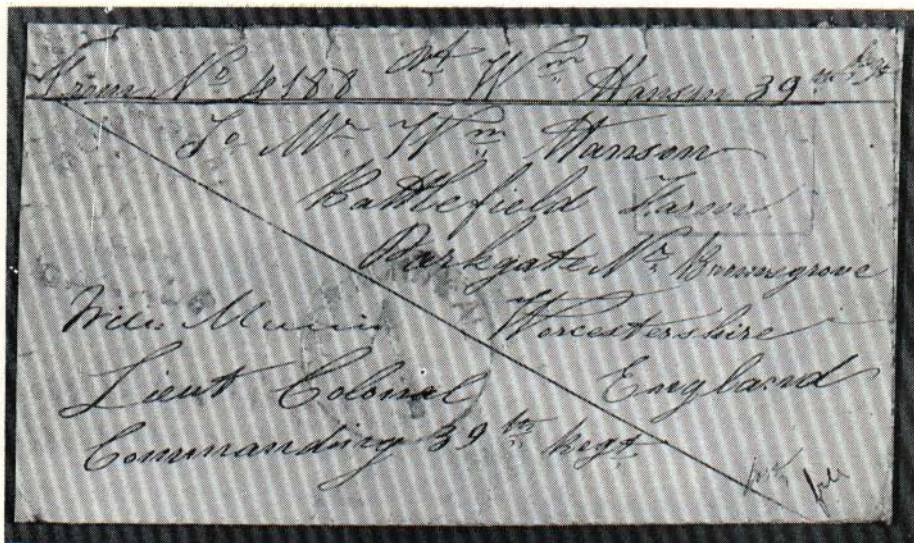 From No 4188 Wm Hanson 39th Regt
To Mr. Wm Hanson
Battlefield Farm
Parkgate Nr. Bromsgrove
Worcestershire
England
Lieut Colonel
Commanding 39th Regt